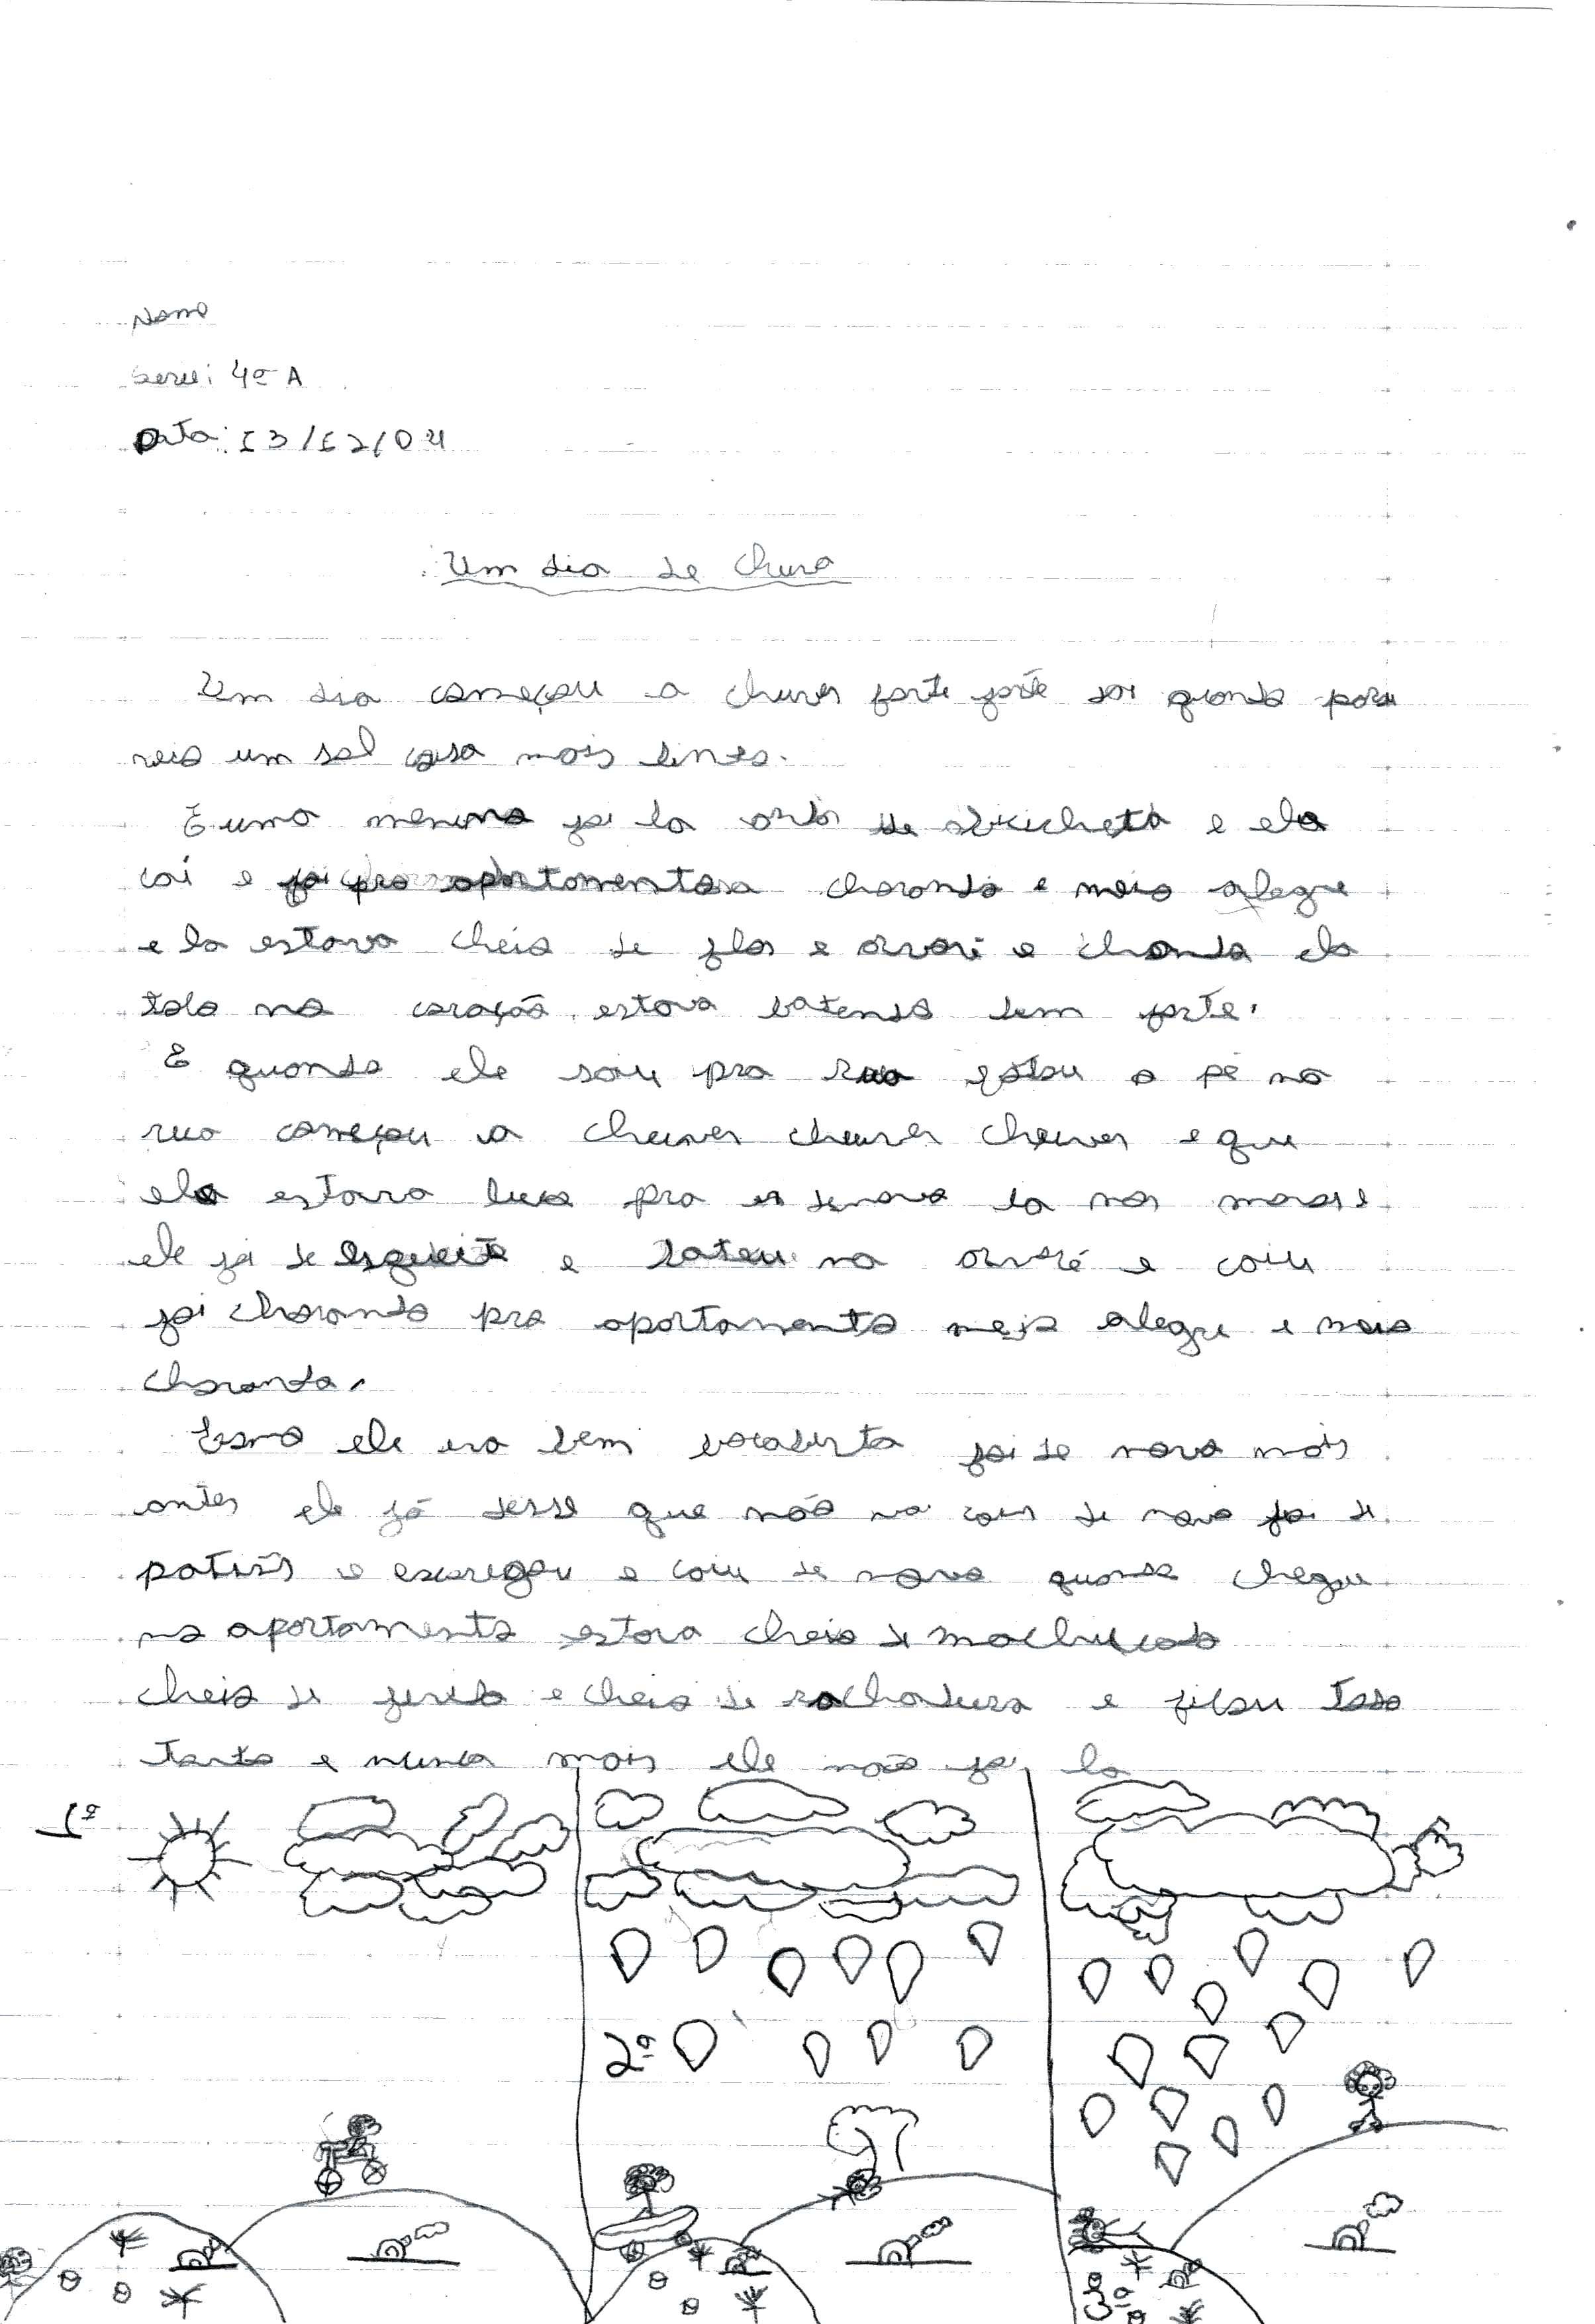 Nome
Serie: 4ª A
Data: 13/12/04
Um dia de Chuva
Um dia começou a chuver forte forte doi quando para
veio um sol cada mais lindo.
E uma menina foi la anda de bicicheta e ela
cai e foi pro apartamento chorando e meio alegre
e la estava cheio de flor e arvori e chando ela
todo no coração estava batendo bem forte.
E quando ele saiu pra rua botou o pé na
rua começou a chuver chuver chuver e que
ela estava la nos
ele foi de esqueite e bateu na arvoré e caiu
foi chorando pro apartamento meio alegre e meio
chorando.
ele era bem foi de novo mais
antes ele já disse que não va cair de novo foi de
patins e escoregou e caiu de novo quando chegou
no apartamento estava cheio de machucado
cheio de ferida e cheio de rachadura e ficou
tanto e nunca mais ele não foi la
1ª
2ª
3ª